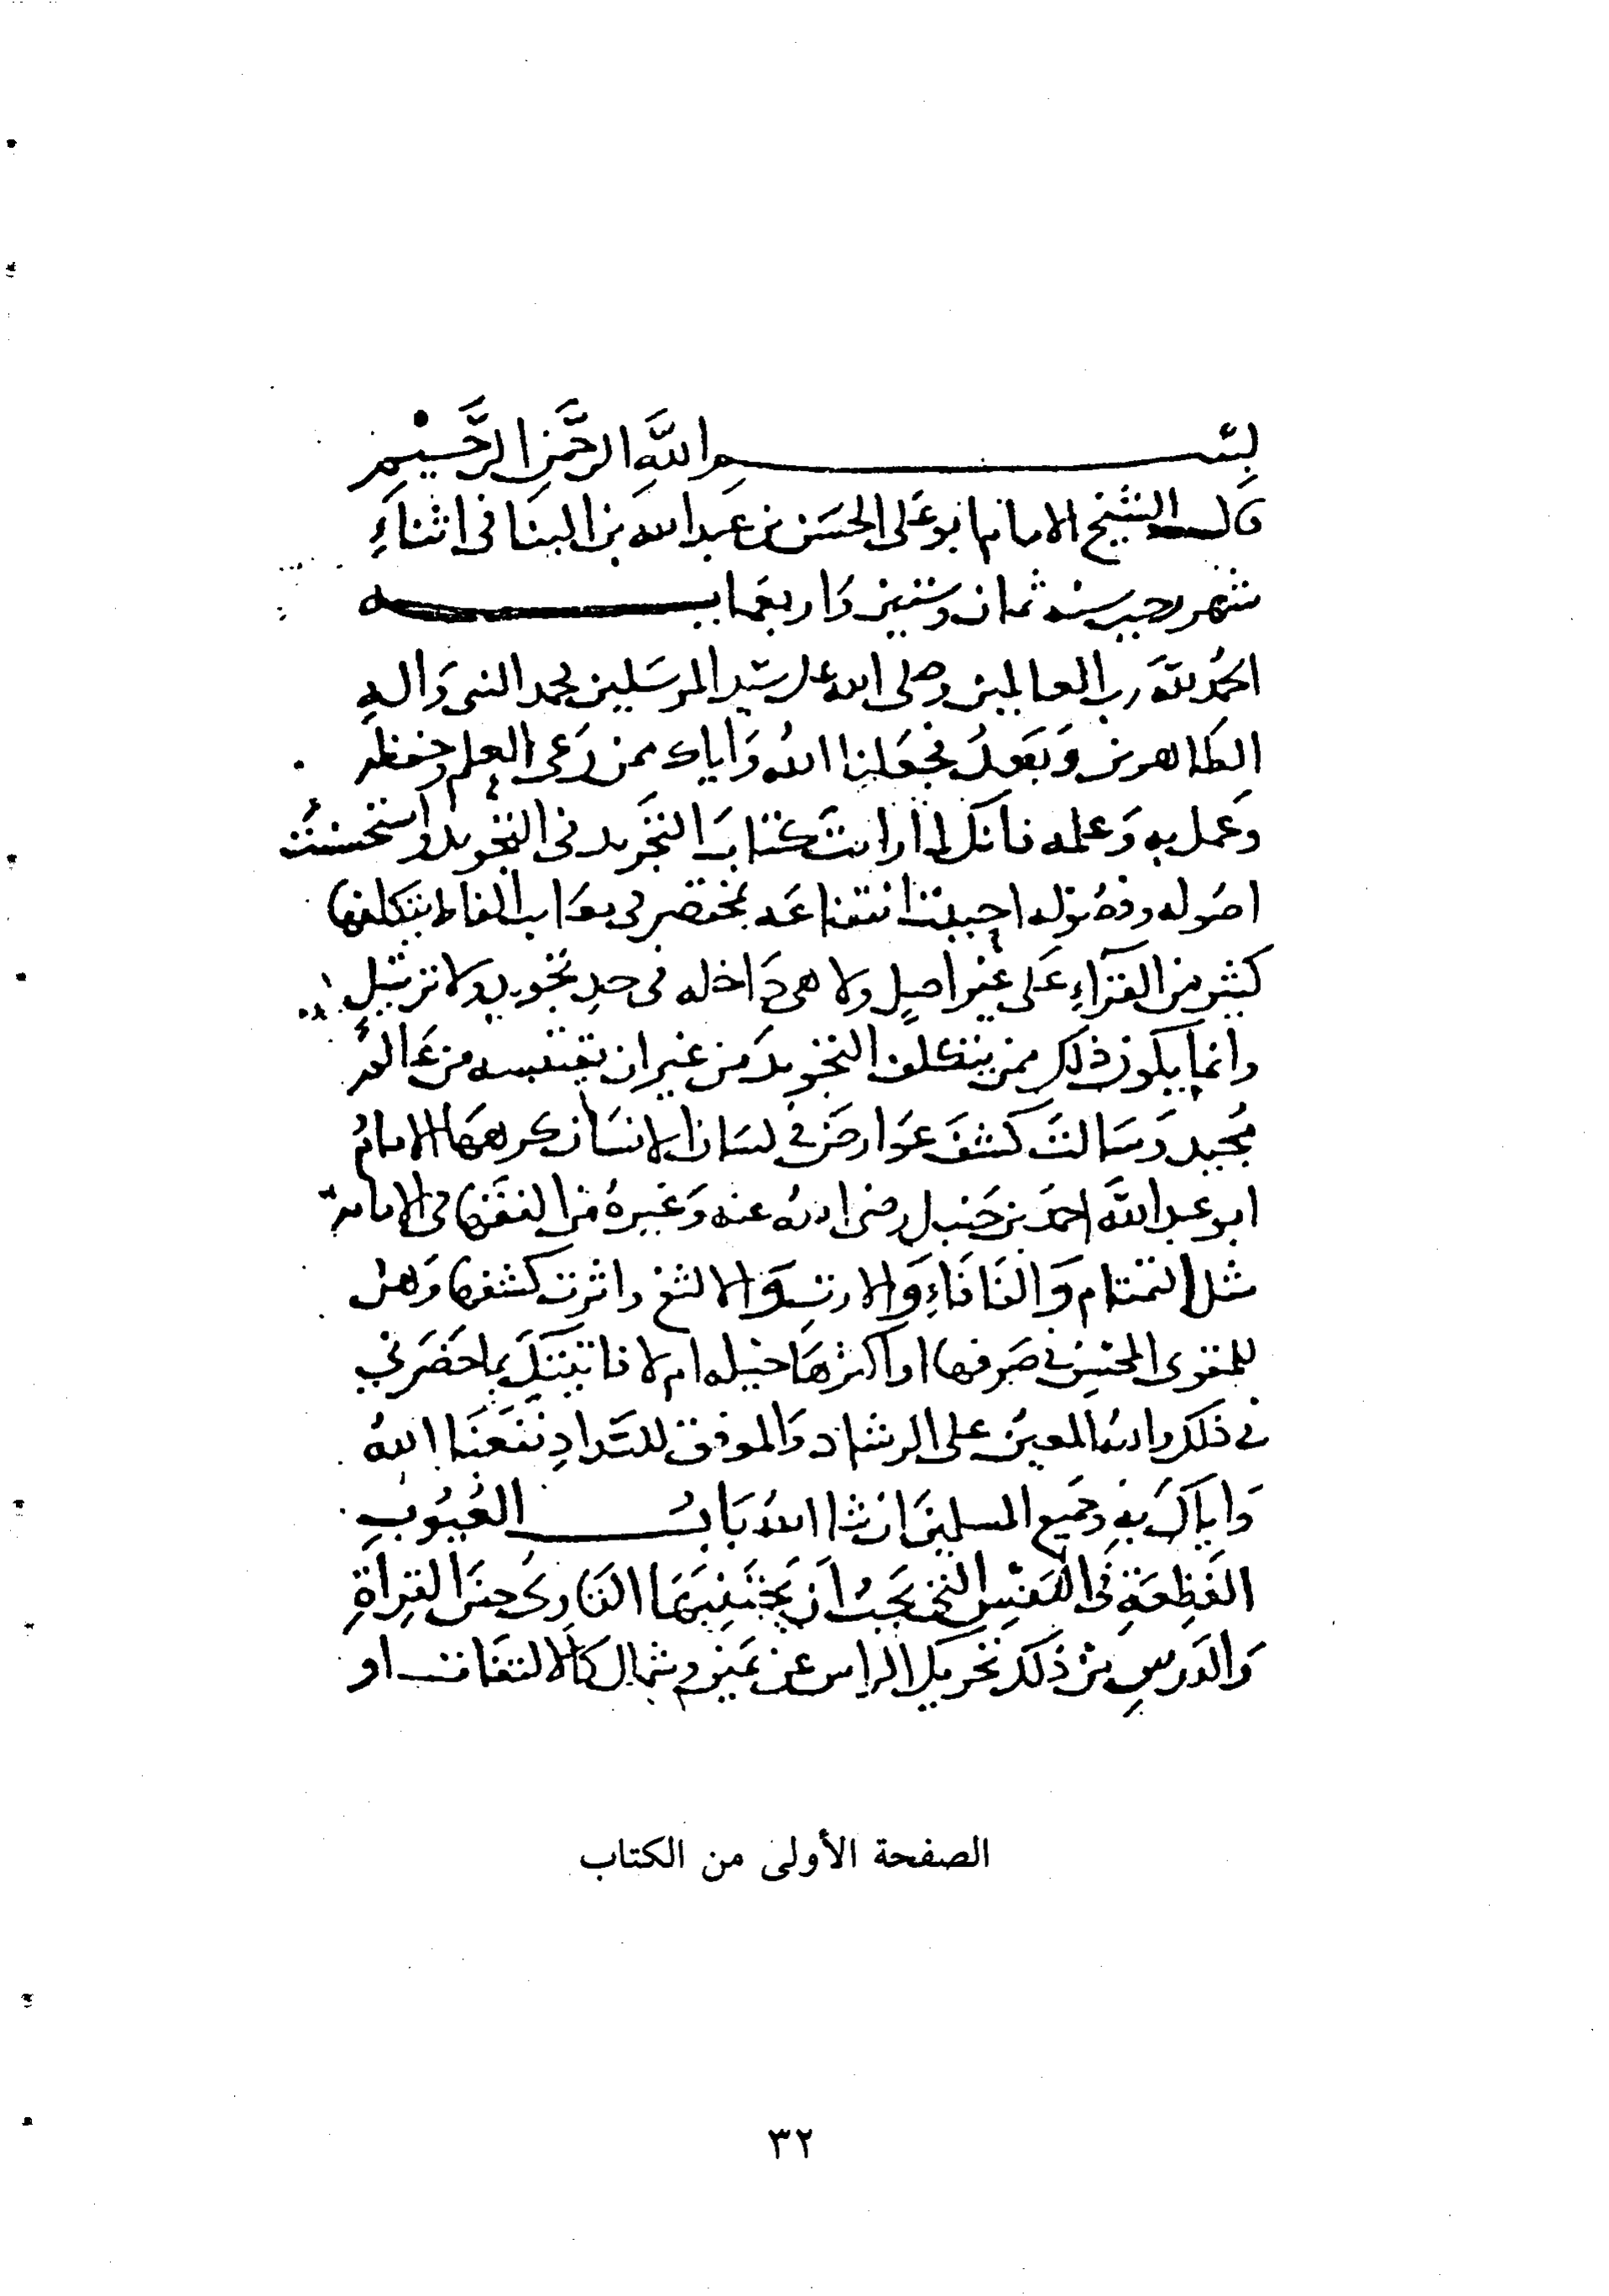 بِسْم اللَّهِ الرَّحْمَنِ الرَّحِيْمِ
قال الشيخ الامام ابو على الحسن بن عبد الله بن البنا فى اثناءِ
شهر رجب سنه ثمان وستين واربعمايه
الحمدُ للهِ رب العالمين وصلى الله على سيد المرسلين محمد النبى واله
الطاهرين وَبَعدُ فجعلنا اللهُ واياك ممن رَعى العلم وحفظه
وعمل به وعلمه فانك لما رايت كتاب التجريد فى التجويد واستحسنت
اصوله وفصوله احببت مختصر فى الفاظ يتكلفها
كثير من القراءِ على غير اصلٍ ولا هى داخله فى حدِ تجويدٍ ولا ترتيلٍ
وانما يكون ذلك ممن يتكلف التجويد من غير ان يقتبسه من عالمٍ
مُجيد وسالت كشف عوارض فى لسان الانسان كرهها الامامُ
ابو عبد الله احمد بن حنبل رضى الله عنه وغيرهُ من الفقها فى الامامة
مثل التمتام والفافاءِ والارت والالثغ واثرت كشفها وهل
للمقرى المحسن فى صرفها او اكثرها حيله ام لا فاتيتك بما حضرنى
فى ذلك والله المعين على الرشاد والموفق للسَّدادِ نفعنا اللهُ
وَاياكَ بهِ وجميع المسلمين ان شا اللهُ بَابُ العُيُوبِ
الفظِعَةِ فى النفس التى يجبُ ان يجتنبها القارىُ حينَ القراةِ
والدرسِ من ذلك تحريك الراس عن يمين وشمال كالالتفات او
الصفحة الأولى من الكتاب
٣٢